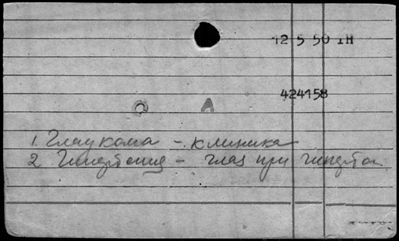 12 5 50 IH
424158
A
1. Глаукома - клиника
2 Гипертония - глаз при гиперто